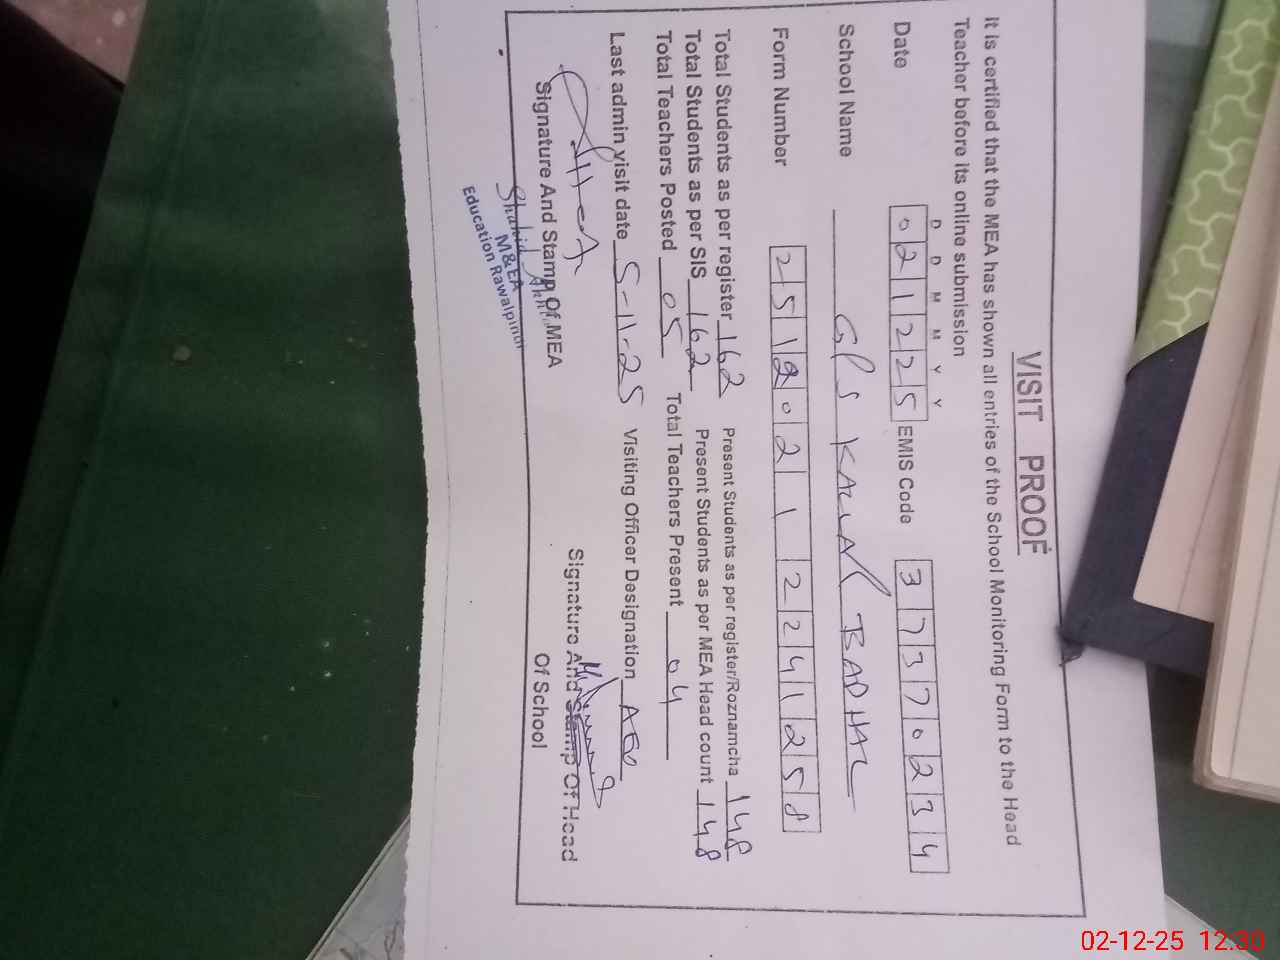 VISIT PROOF
It is certified that the MEA has shown all entries of the School Monitoring Form to the Head
Teacher before its online submission
D D M M Y Y
Date 0 2 1 2 2 5 EMIS Code 3 7 3 7 0 2 3 4
School Name GPS KALYAL BADHAL
Form Number 2 5 1 2 0 2 1 2 2 4 1 2 5 8
Total Students as per register 162 Present Students as per register/Roznamcha 148
Total Students as per SIS 162 Present Students as per MEA Head count 148
Total Teachers Posted 05 Total Teachers Present 04
Last admin visit date 5-11-25 Visiting Officer Designation AEO
Signature And Stamp Of MEA
Signature And Stamp Of Head
Of School
Shahid
M&EA
Education Rawalpindi
02-12-25 12:30